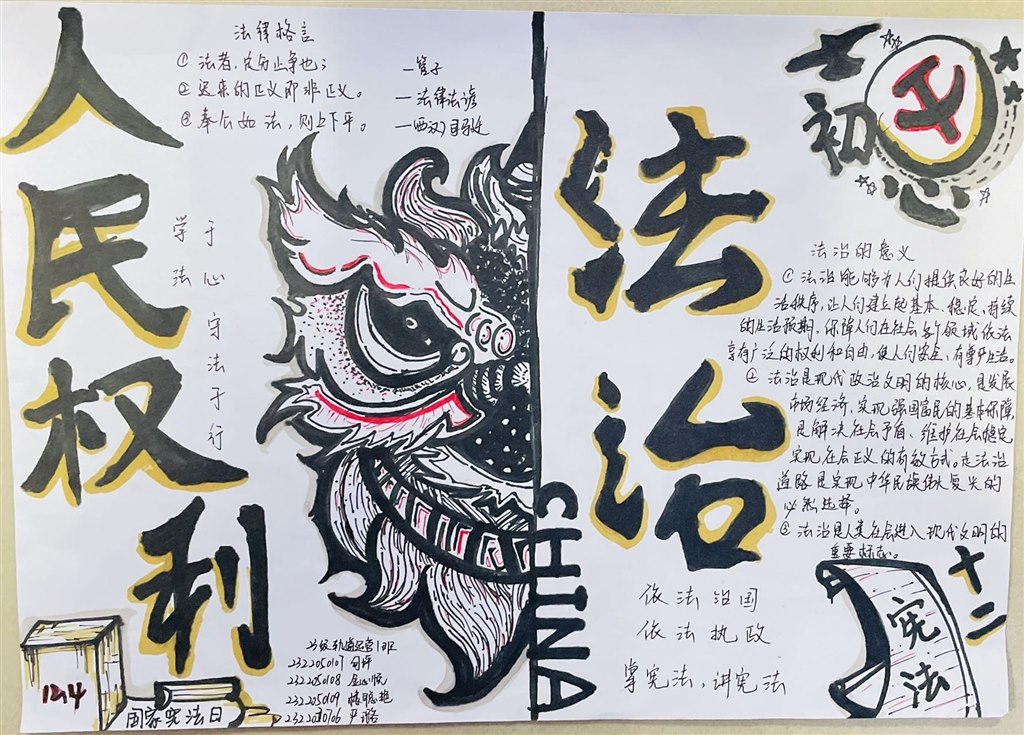 人民权利
法律格言
① 法者，定分止争也；
—管子
② 迟来的正义即非正义。
—法律法谚
③ 奉公如法，则上下平。
—（西汉）司马迁
学法于心
守法于行
12.4
国家宪法日
2322050107
2322050108
2322050109
2322010106
CHINA
法治
初心
法治的意义
① 法治能够为人们提供良好的生
活秩序，让人们建立起基本、稳定、持续
的生活预期，保障人们在社会各个领域依法
享有广泛的权利和自由，使人们安全、有尊严生活。
② 法治是现代政治文明的核心，是发展
市场经济，实现强国富民的基本保障，
是解决社会矛盾、维护社会稳定
实现社会正义的有效方式。走法治
道路是实现中华民族伟大复兴的
必然选择。
③ 法治是人类社会进入现代文明的
重要标志。
依法治国
依法执政
掌宪法，讲宪法
宪法
十二